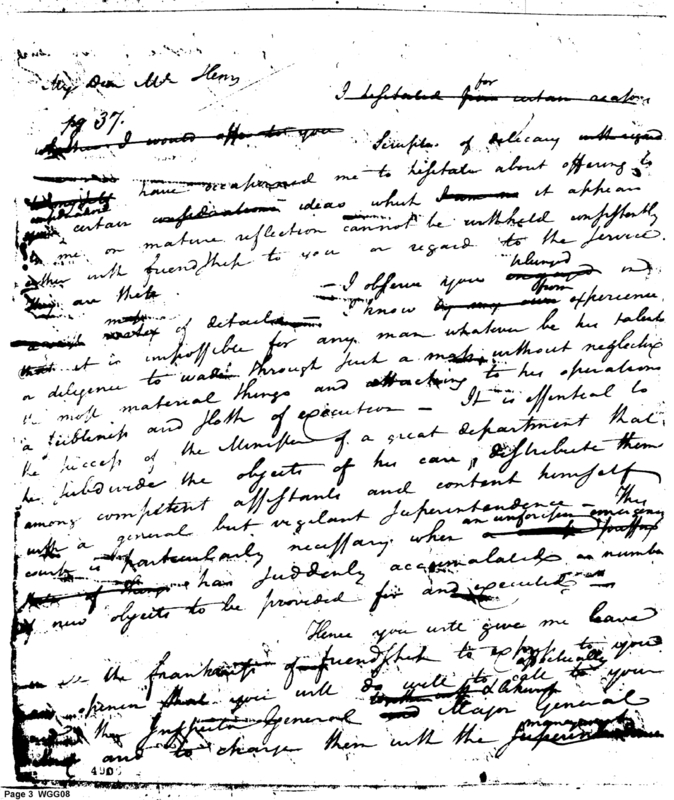 My Dear Mr Henry
I hesitated from for certain reasons
pg 37.
I would offer to you Scruples of delicacy with regard
have occasioned me to hesitate about offering to
you certain considerations ideas which it appears
to me on mature reflection cannot be withheld consistently
either with friendship to you or regard to the service.
They are these
I observe you engaged plunged in
a mass of details I know by my own from experience
that it is impossible for any man whatever be his talents
or diligence to wade through such a mass without neglecting
the most material things and attaching to his operations
a feebleness and sloth of execution — It is essential to
the success of the Minister of a great department that
he subdivide the objects of his care, distribute them
among competent assistants and content himself
with a general but vigilant superintendence — This
course is particularly necessary when an unforeseen emergency
has suddenly accumulated a number
of new objects to be provided for and executed —
Hence you will give me leave
the frankness of friendship to express to you
opinion that you will do well to call to your effectually
the Inspector General and Major General
and to charge them with the management
490
Page 3 WGG08